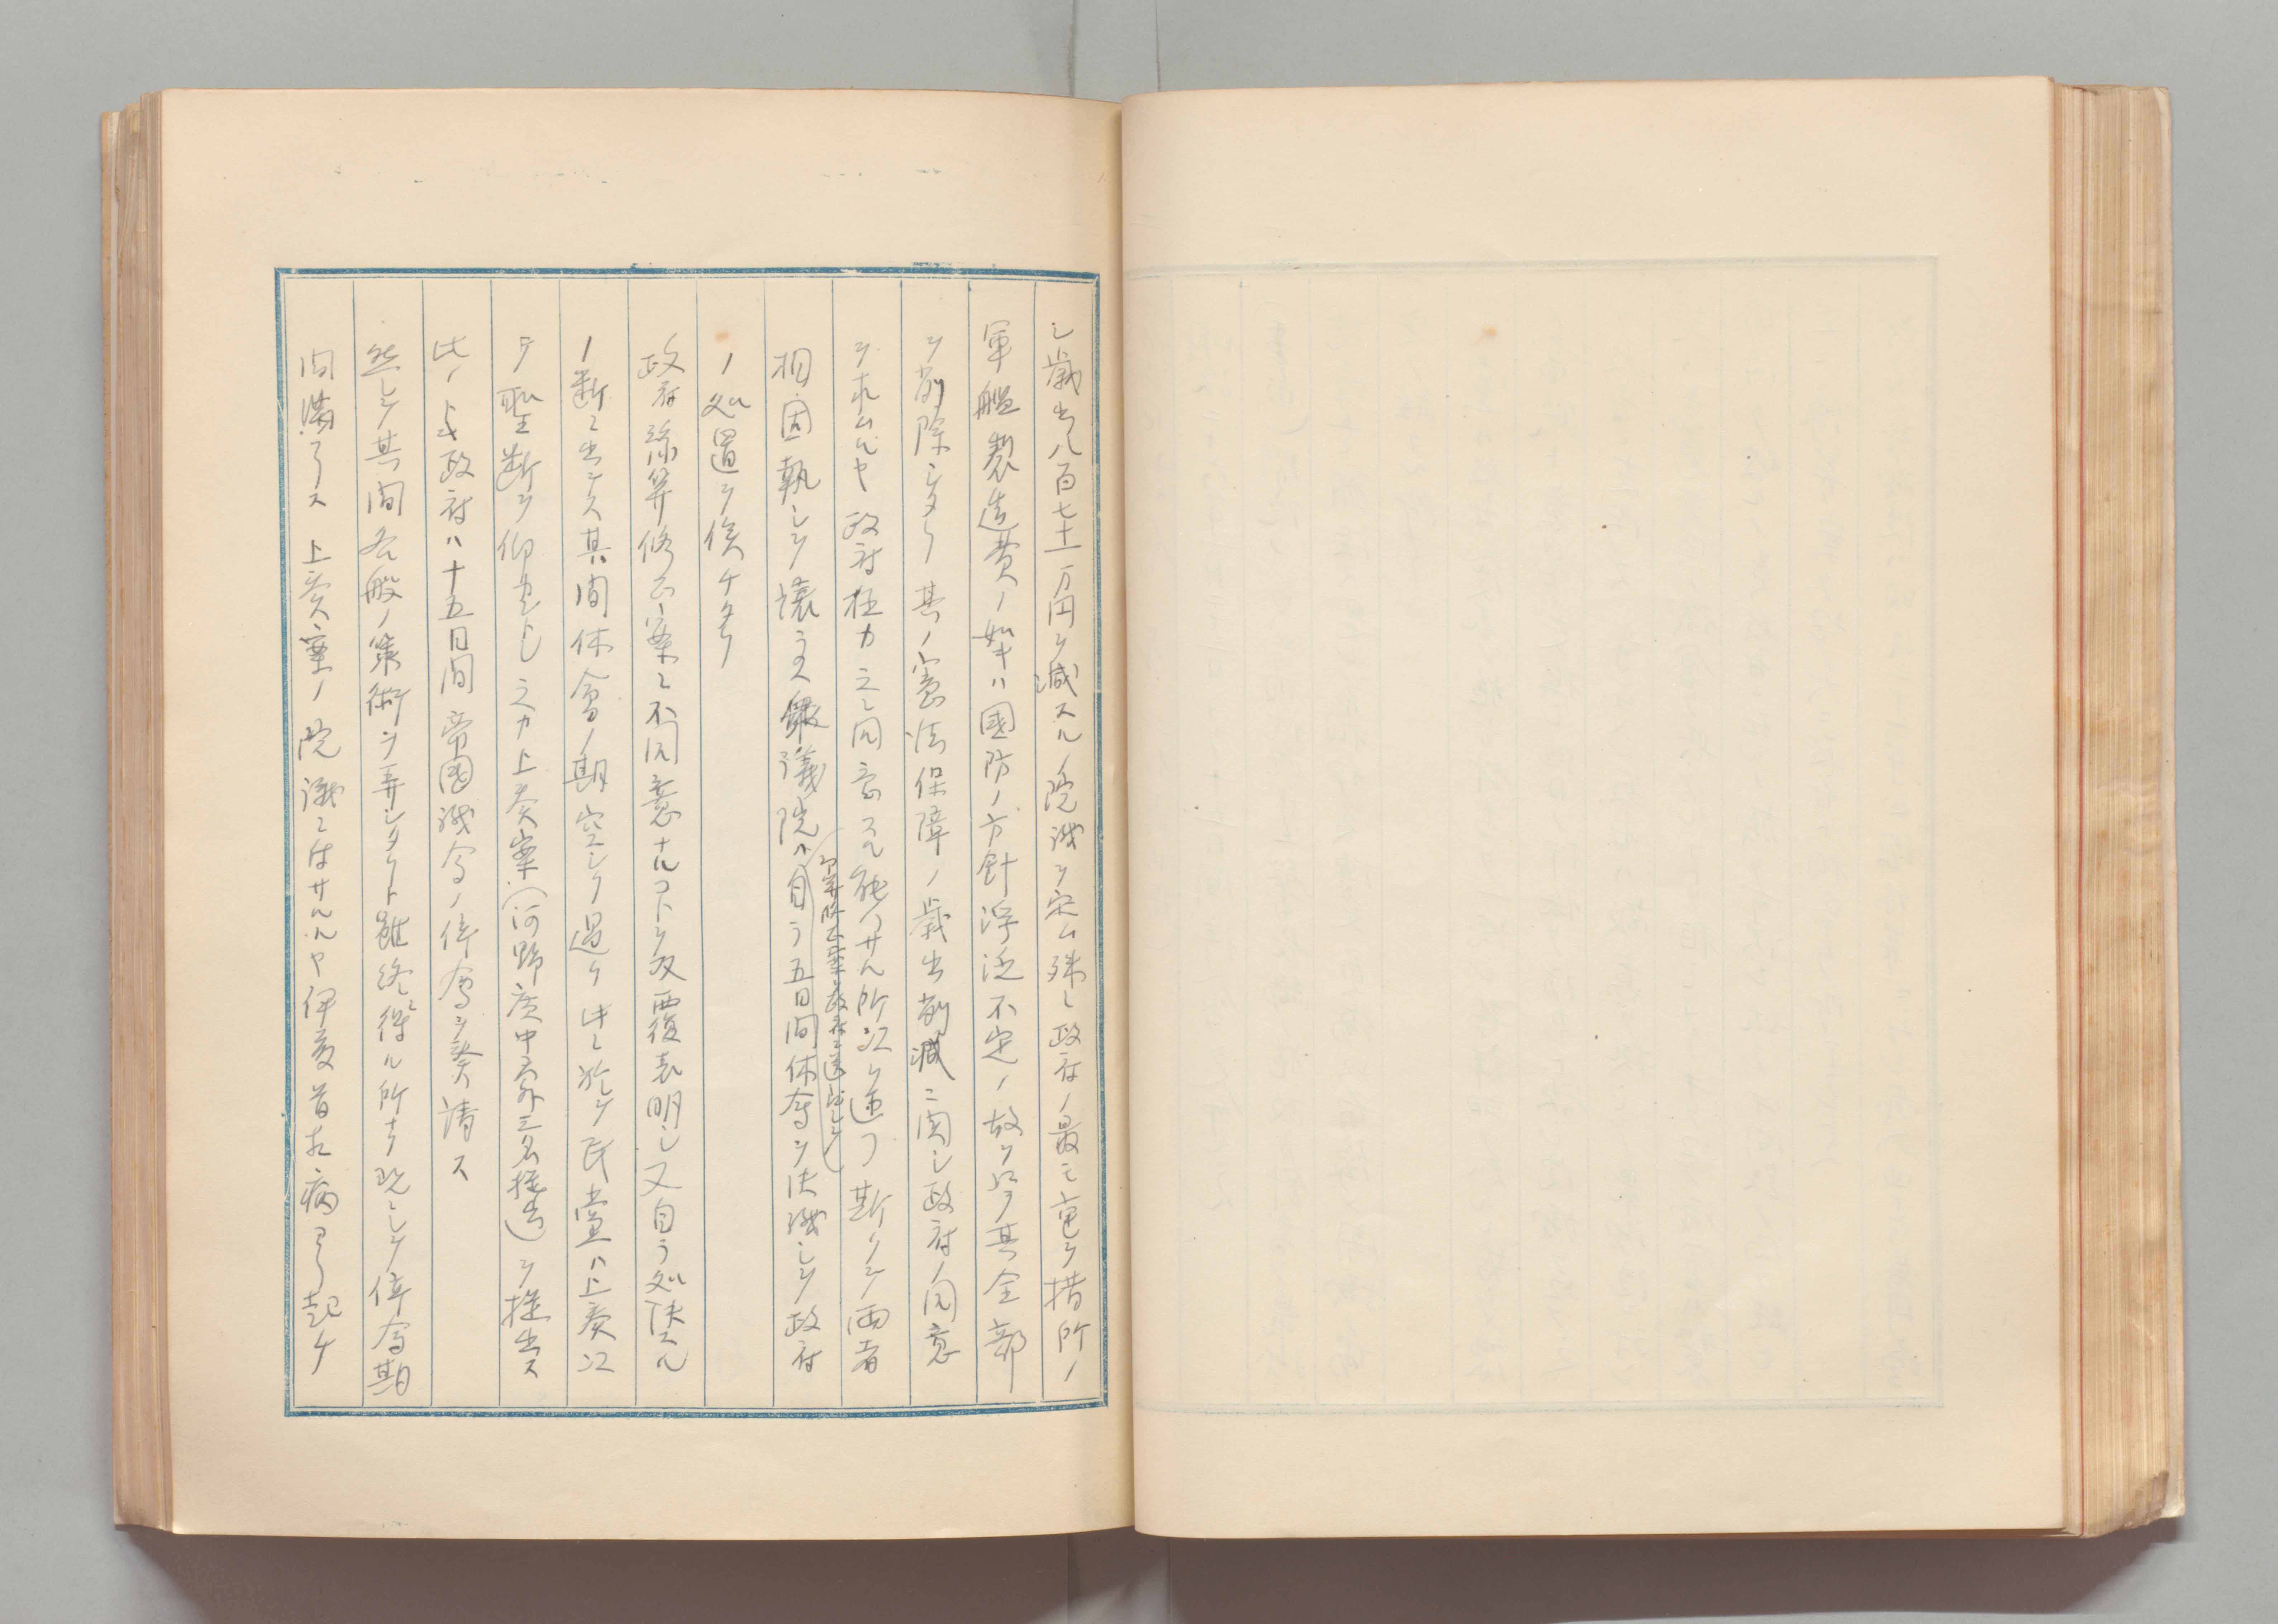 シ歳出八百七十一万円ヲ減スルノ院議ヲ定ム殊ニ政府ノ最モ重ヲ措所ノ
軍艦製造費ノ如キハ國防ノ方針浮泛不定ノ故ヲ以テ其全部
ヲ削除シタリ其ノ憲法保障ノ歳出削減ニ関シ政府ノ同意
ヲ求ムルヤ政府極力之ニ同意スル能ハサル所以ヲ述フ斯クシテ両者
相固執シテ讓ラス衆議院ハ自ラ五日間休会ヲ決議シテ政府
予算修正案ヲ政府ニ送付シテ
ノ処置ヲ俟チタリ
政府ハ予算修正案ニ不同意ナルコトヲ反覆表明シ又自ラ処決スル
ノ断ニ出テス其間休會ノ期空シク過ク此ニ於テ民黨ハ上奏以
テ聖断ヲ仰カントシ之カ上奏案(河野広中君外三名提出)ヲ提出ス
此ノ日政府ハ十五日間帝國議会ノ停会ヲ奏請ス
然シテ其間各般ノ策術ヲ弄シタリト雖終ニ得ル所ナク既ニシテ停会期
間満了ス上奏案ノ院議ニ付サルルヤ伊藤首相病ヨリ起ケ